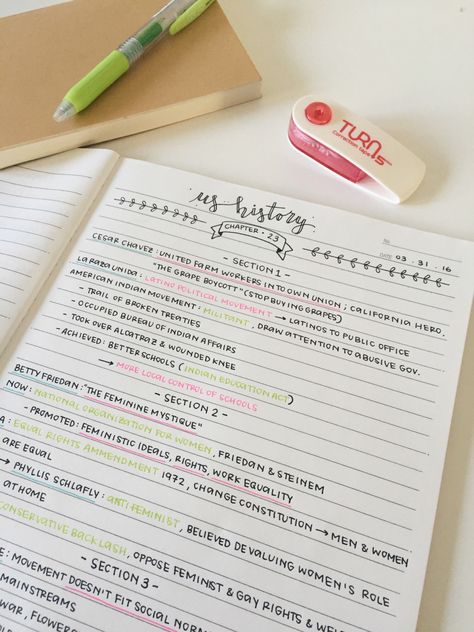 TURN 5
Correction tape
us history
NO
CHAPTER · 23
DATE 03 . 31 . 16
- SECTION 1 -
CESAR CHAVEZ : UNITED FARM WORKERS INTO OWN UNION ; CALIFORNIA HERO.
"THE GRAPE BOYCOTT" (STOP BUYING GRAPES)
LA RAZA UNIDA : LATINO POLITICAL MOVEMENT → LATINOS TO PUBLIC OFFICE
AMERICAN INDIAN MOVEMENT : MILITANT , DRAW ATTENTION TO ABUSIVE GOV.
- TRAIL OF BROKEN TREATIES
- OCCUPIED BUREAU OF INDIAN AFFAIRS
- TOOK OVER ALCATRAZ & WOUNDED KNEE
- ACHIEVED : BETTER SCHOOLS ( INDIAN EDUCATION ACT)
→ MORE LOCAL CONTROL OF SCHOOLS
- SECTION 2 -
BETTY FRIEDAN : "THE FEMININE MYSTIQUE"
NOW : NATIONAL ORGANIZATION FOR WOMEN , FRIEDAN & STEINEM
- PROMOTED : FEMINISTIC IDEALS, RIGHTS, WORK EQUALITY
A : EQUAL RIGHTS AMMENDMENT 1972 , CHANGE CONSTITUTION → MEN & WOMEN
ARE EQUAL
→ PHYLLIS SCHLAFLY : ANTI FEMINIST , BELIEVED DEVALUING WOMEN'S ROLE
AT HOME
CONSERVATIVE BACKLASH , OPPOSE FEMINIST & GAY RIGHTS &
- SECTION 3 -
: MOVEMENT DOESN'T FIT SOCIAL
MAINSTREAMS
WAR,